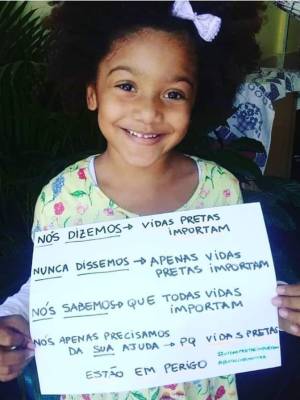 NÓS DIZEMOS → VIDAS PRETAS
IMPORTAM
NUNCA DISSEMOS → APENAS VIDAS
PRETAS IMPORTAM
NÓS SABEMOS → QUE TODAS VIDAS
IMPORTAM
NÓS APENAS PRECISAMOS
DA SUA AJUDA → PQ VIDAS PRETAS
ESTÃO EM PERIGO
#VIDASPRETASIMPORTAM